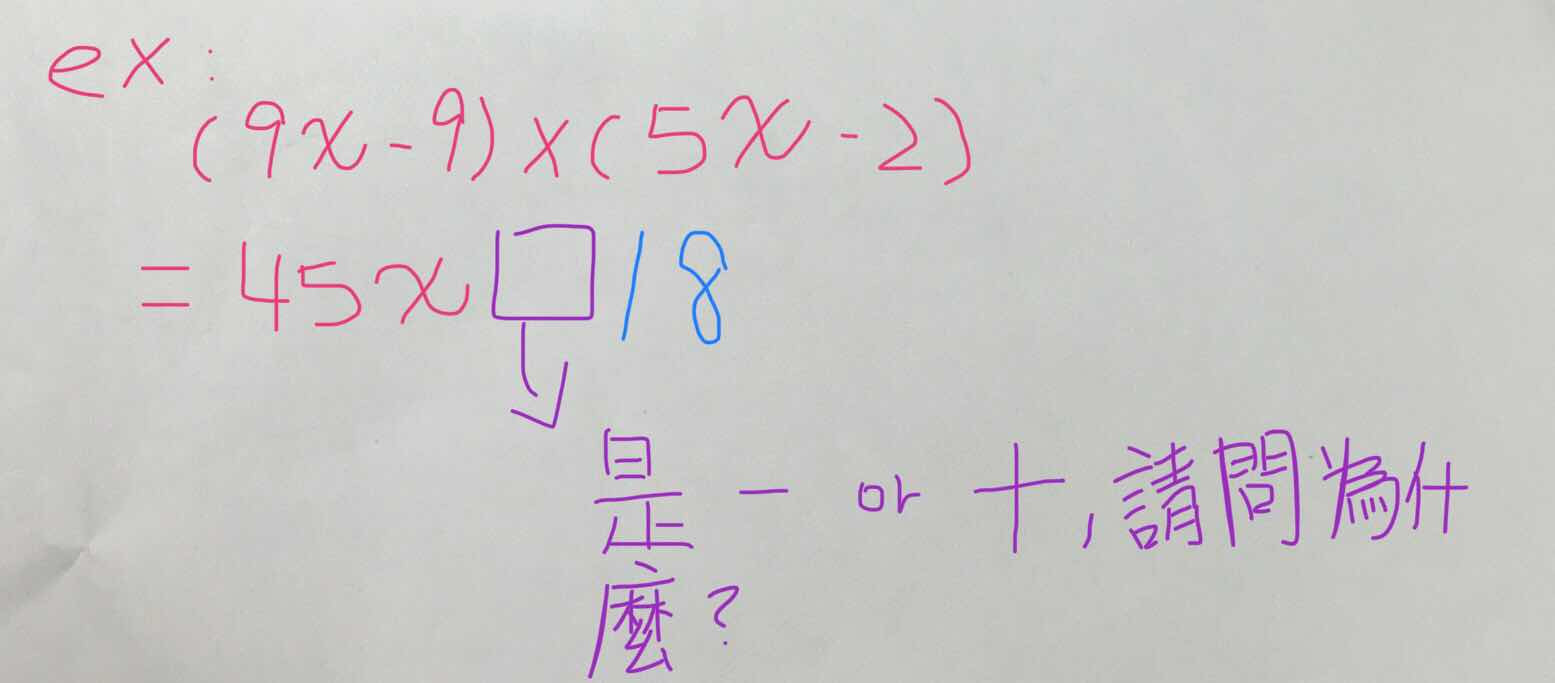 ex:
(9x-9)×(5x-2)
=45x□18
是－or＋,請問為什
麼?